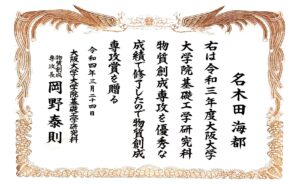 名木田 海都
右は令和三年度大阪大学
大学院基礎工学研究科
物質創成専攻を優秀な
成績で修了したので物質創成
専攻賞を贈る
令和四年三月二十四日
大阪大学大学院基礎工学研究科
物質創成
専攻長 岡野 泰則